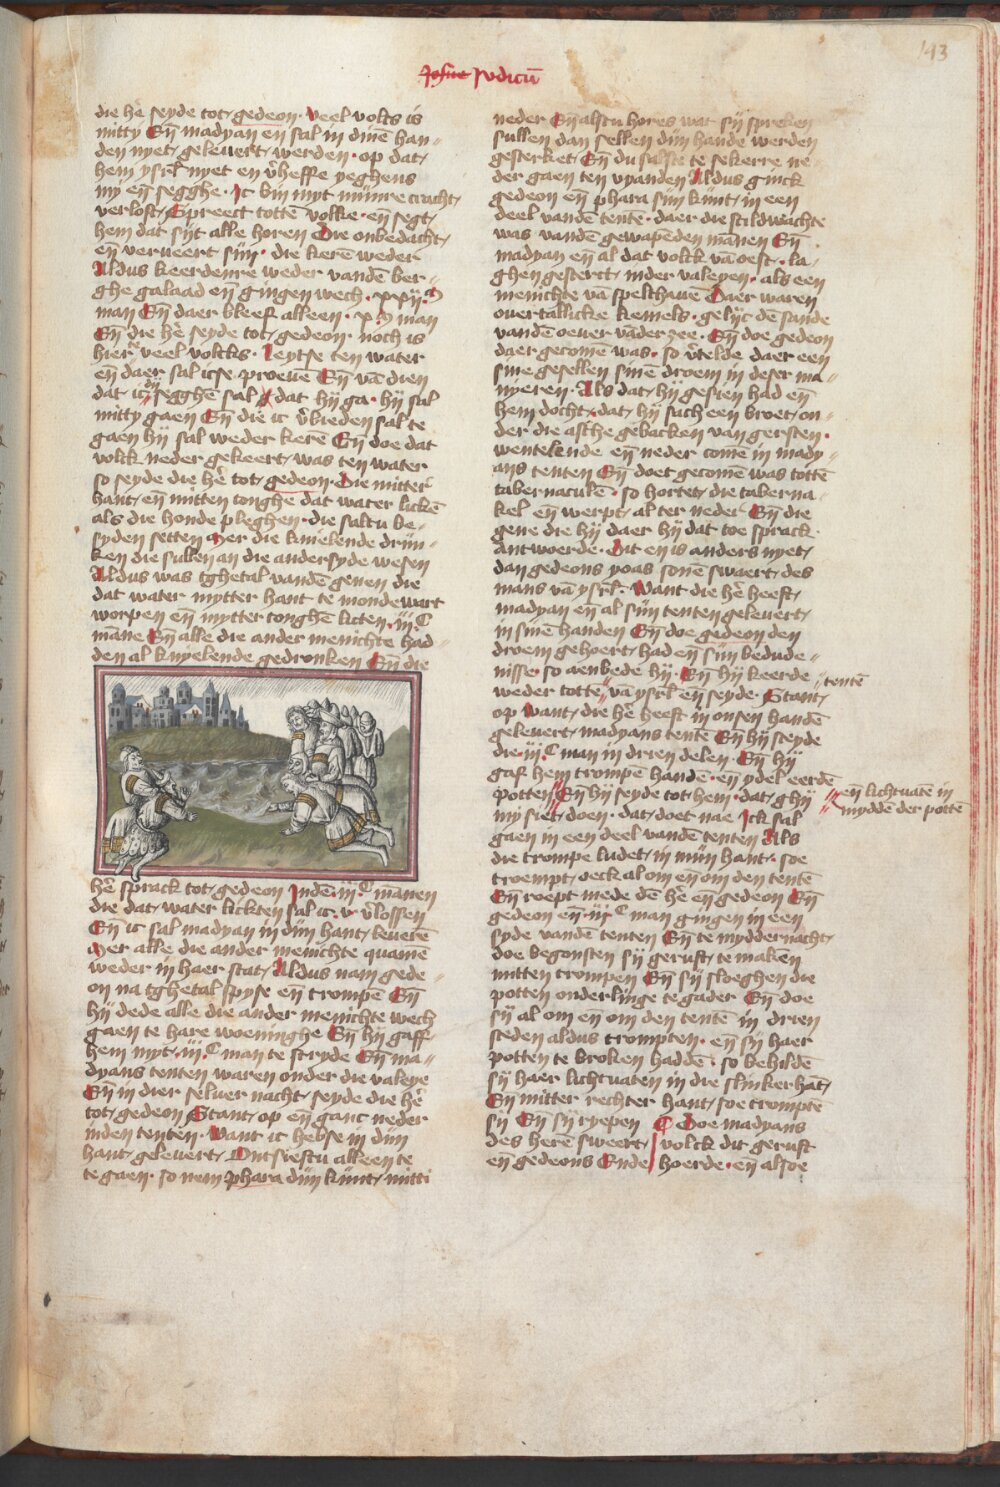 193
Josue Judicū
die hē seyde tot gedeon. Veel volks is
mitty Eñ madyan eñ sal in dinē han„
den nyet geleuert werden. op dat
hem ysrl nyet en v̄heffe yeghens
my eñ segghe. Ic bin myt mijnre cracht
verlost, Spreect tottē volke. eñ segt,
hem dat sijt alle horen Die onbedacht
eñ verueert sijn. die kerē weder
Aldus keerdenre weder vandē ber„
ghe galaad eñ gingen wech. xxij. M
man Eñ daer bleef alleen. x. M man
Eñ die hē seyde tot gedeon. noch is
hier te veel volcks. Leytse ten water
eñ daer sal icse proeuē Eñ vā dien
dat ic dij segghē sal dat hij ga. hij sal
mitty gaen Eñ die ic v̄bieden sal te
gaen hij sal weder kerē Eñ doe dat
volck neder gekeert was ten water
so seyde die hē tot gedeon. Die mitter
hant eñ mitten tonghe dat water lickē
als die honde pleghen. die saltu be„
syden setten Mer die knielende drin„
ken die sullen an die andersyde wesen
Aldus was tghetal vandē genen die
dat water mytter hant te mondewart
worpen eñ mytter tonghē licten. iij. C
māne Eñ alle die ander menichte had„
den al knyelende gedronken Eñ die
hē sprack tot gedeon Inde. iij. C mānen
die dat water lickten sal ic. v v̄lossen
Eñ ic sal madyan in dijn hant leuerē
Mer alle die ander menichte quamē
weder in haer stat, Aldus nam gede„
on na tghetal spyse eñ trompē Eñ
hij dede alle die ander menichte wech
gaen te hare woeninghe Eñ hij gaff
hem myt. iij. C man te stryde Eñ ma„
dyans tenten waren onder die valeye
Eñ in dier seluer nacht seyde die hē
tot gedeon Stant op eñ ganc neder
inden tenten. Want ic hebse in dijn
hant geleuert, Ontsiestu alleen te
te gaen. so nem phara dijn kint mitti
neder Eñ alstu hores wat sij spreken
sullen dan sellen dijn hande werden
gesterket, Eñ du salste te sekerre ne„
der gaen ten vyanden Aldus ginck
gedeon eñ phara sijn kint in een
deel vandē tentē. daer die scildwachte
was vandē gewapēden mānen Eñ
madyan eñ al dat volck vā oest. la„
ghen gestrect inder valeyen. als een
menichte vā spelthauē Daer waren
ouertallicke kemels. gelijc dē sande
vandē oeuer vāder zee. Eñ doe gedeon
daer gecomē was. so v̄telde daer een
sine gesellen sinē droem in deser ma„
nyeren. Als dat hij gesien had eñ
hem docht dat hij sach een broet on„
der die assche gebacken van gersten.
wentelende eñ neder comē in mady„
ans tenten Eñ doet gecomē was tottē
tabernaculē. so hortet die taberna„
kel eñ werpt al ter neder Eñ die
gene die hij daer hij dat toe sprack
Antwoerde. Dit en is anders nyet
dan gedeons yoas sonē swaert des
mans vā ysrl. Want die hē heeft
madyan eñ al sijn tenten geleuert,
in sinē handen Eñ doe gedeon den
droem gehoert had eñ sijn bedude„
nisse. so aenbede hij. Eñ hij keerde
weder totte tentē vā ysrl eñ seyde. Stant
op want die hē heeft in onsen handē
geleuert madyans tentē Eñ hij steyde
die. iij. C man in drien delen. Eñ hij
gaf hem trompē handē. eñ ydel eerdē
potten eñ lichtuatē in mydden der pottē Eñ hij seyde tot hem. dat ghij
my siet doen. dat doet nae Ick sal
gaen in een deel vandē tenten Als
die trompe ludet in mijn hant. soe
troempt oeck al om eñ om den tentē
Eñ roept mede dē hē eñ gedeon Eñ
gedeon eñ. iij. C man gingen in een
syde vandē tenten Eñ te myddernacht
doe begonsten sij geruft te maken
mitten trompen Eñ sij sloeghen die
potten onderlinge te gader Eñ doe
sij al om eñ om den tentē in drien
steden aldus trompten. eñ sij haer
potten te broken haddē. so behildē
sij haer lichtuaten in die slinkerhāt
Eñ mitter rechter hant soe tromptē
sij Eñ sij ryepen
des herē sweert
eñ gedeons Ende
Doe madyans
volck dit geruft
hoerde. eñ alsoe